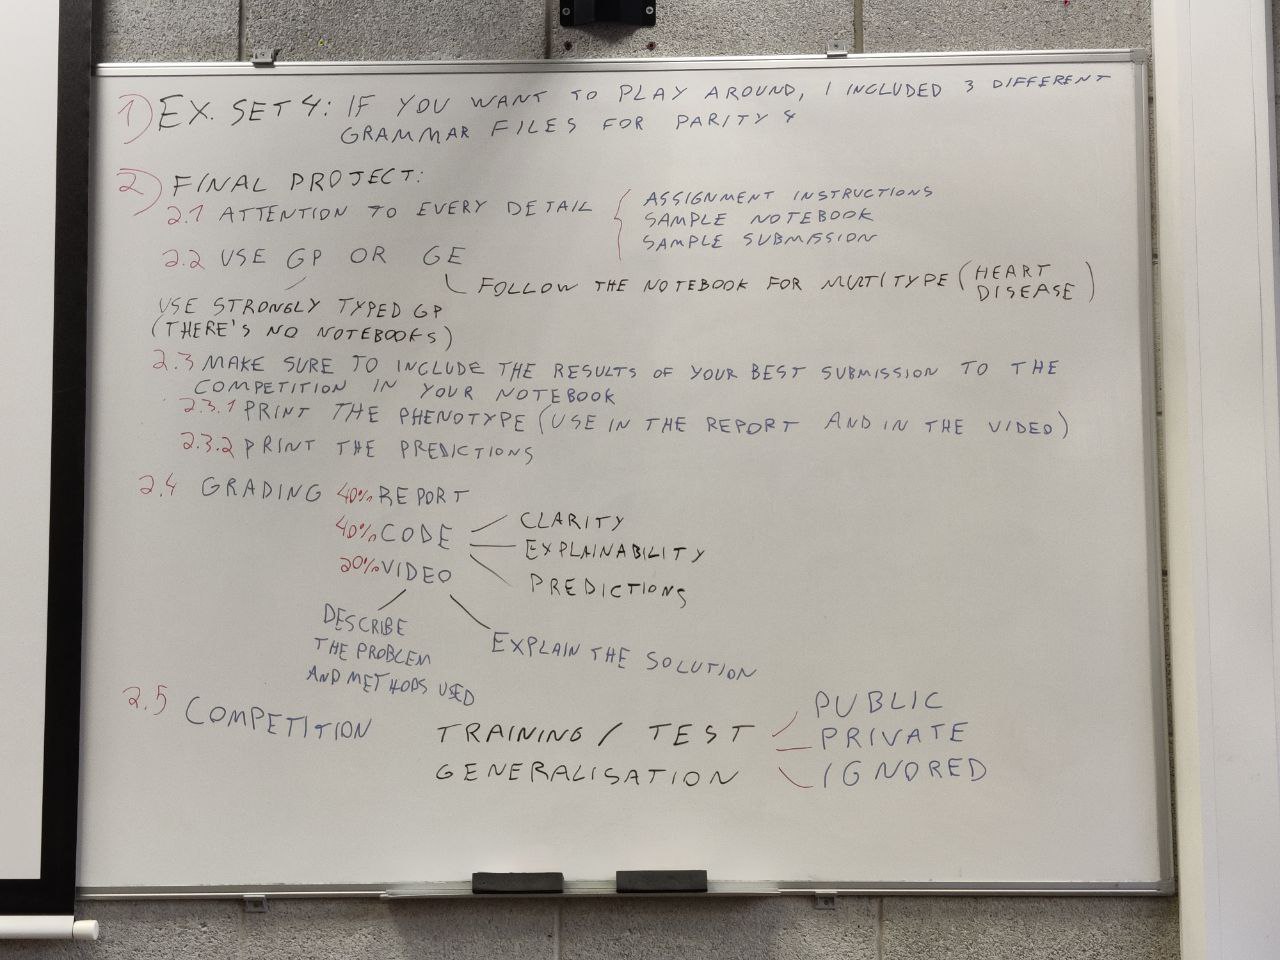 1) EX. SET 4: IF YOU WANT TO PLAY AROUND, I INCLUDED 3 DIFFERENT
GRAMMAR FILES FOR PARITY 4
2) FINAL PROJECT:
2.1 ATTENTION TO EVERY DETAIL { ASSIGNMENT INSTRUCTIONS
SAMPLE NOTEBOOK
SAMPLE SUBMISSION
2.2 USE GP OR GE
FOLLOW THE NOTEBOOK FOR MULTITYPE (HEART
DISEASE)
USE STRONGLY TYPED GP
(THERE'S NO NOTEBOOKS)
2.3 MAKE SURE TO INCLUDE THE RESULTS OF YOUR BEST SUBMISSION TO THE
COMPETITION IN YOUR NOTEBOOK
2.3.1 PRINT THE PHENOTYPE (USE IN THE REPORT AND IN THE VIDEO)
2.3.2 PRINT THE PREDICTIONS
2.4 GRADING 40% REPORT
40% CODE
20% VIDEO
CLARITY
EXPLAINABILITY
PREDICTIONS
DESCRIBE
THE PROBLEM
AND METHODS USED
EXPLAIN THE SOLUTION
2.5 COMPETITION
TRAINING / TEST
GENERALISATION
PUBLIC
PRIVATE
IGNORED